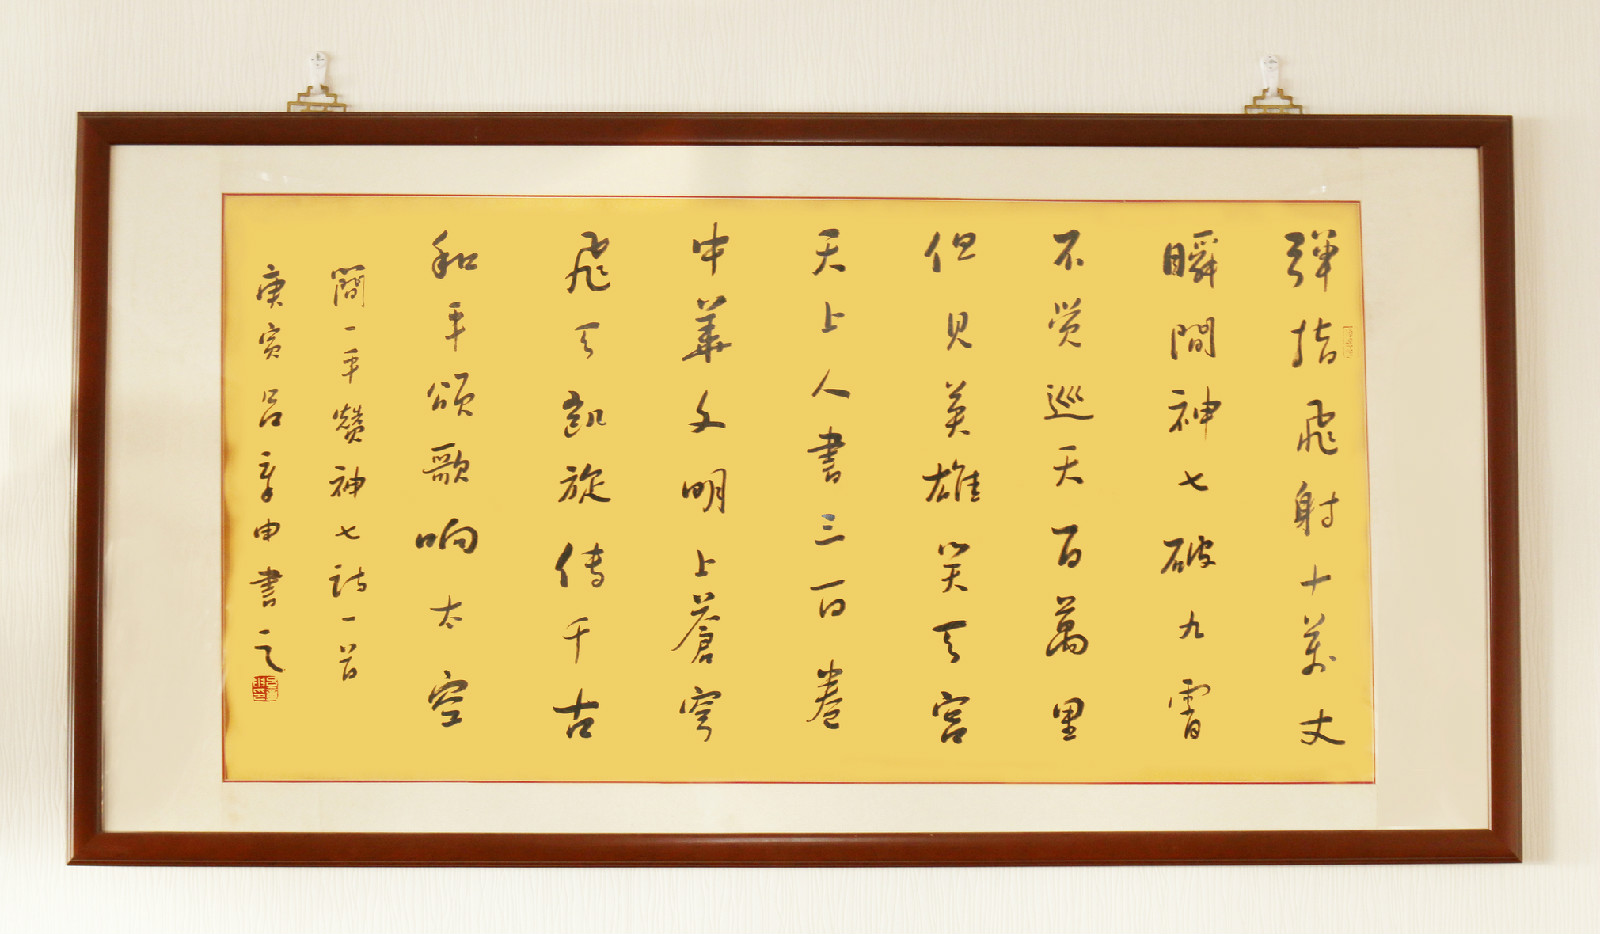 弹指飛射十萬丈
瞬間神七破九霄
不觉巡天百萬里
但見英雄笑天宫
天上人書三百卷
中華文明上蒼穹
飛天凱旋传千古
和平頌歌响太空
簡一平赞神七詩一首
庚寅吕章申書之